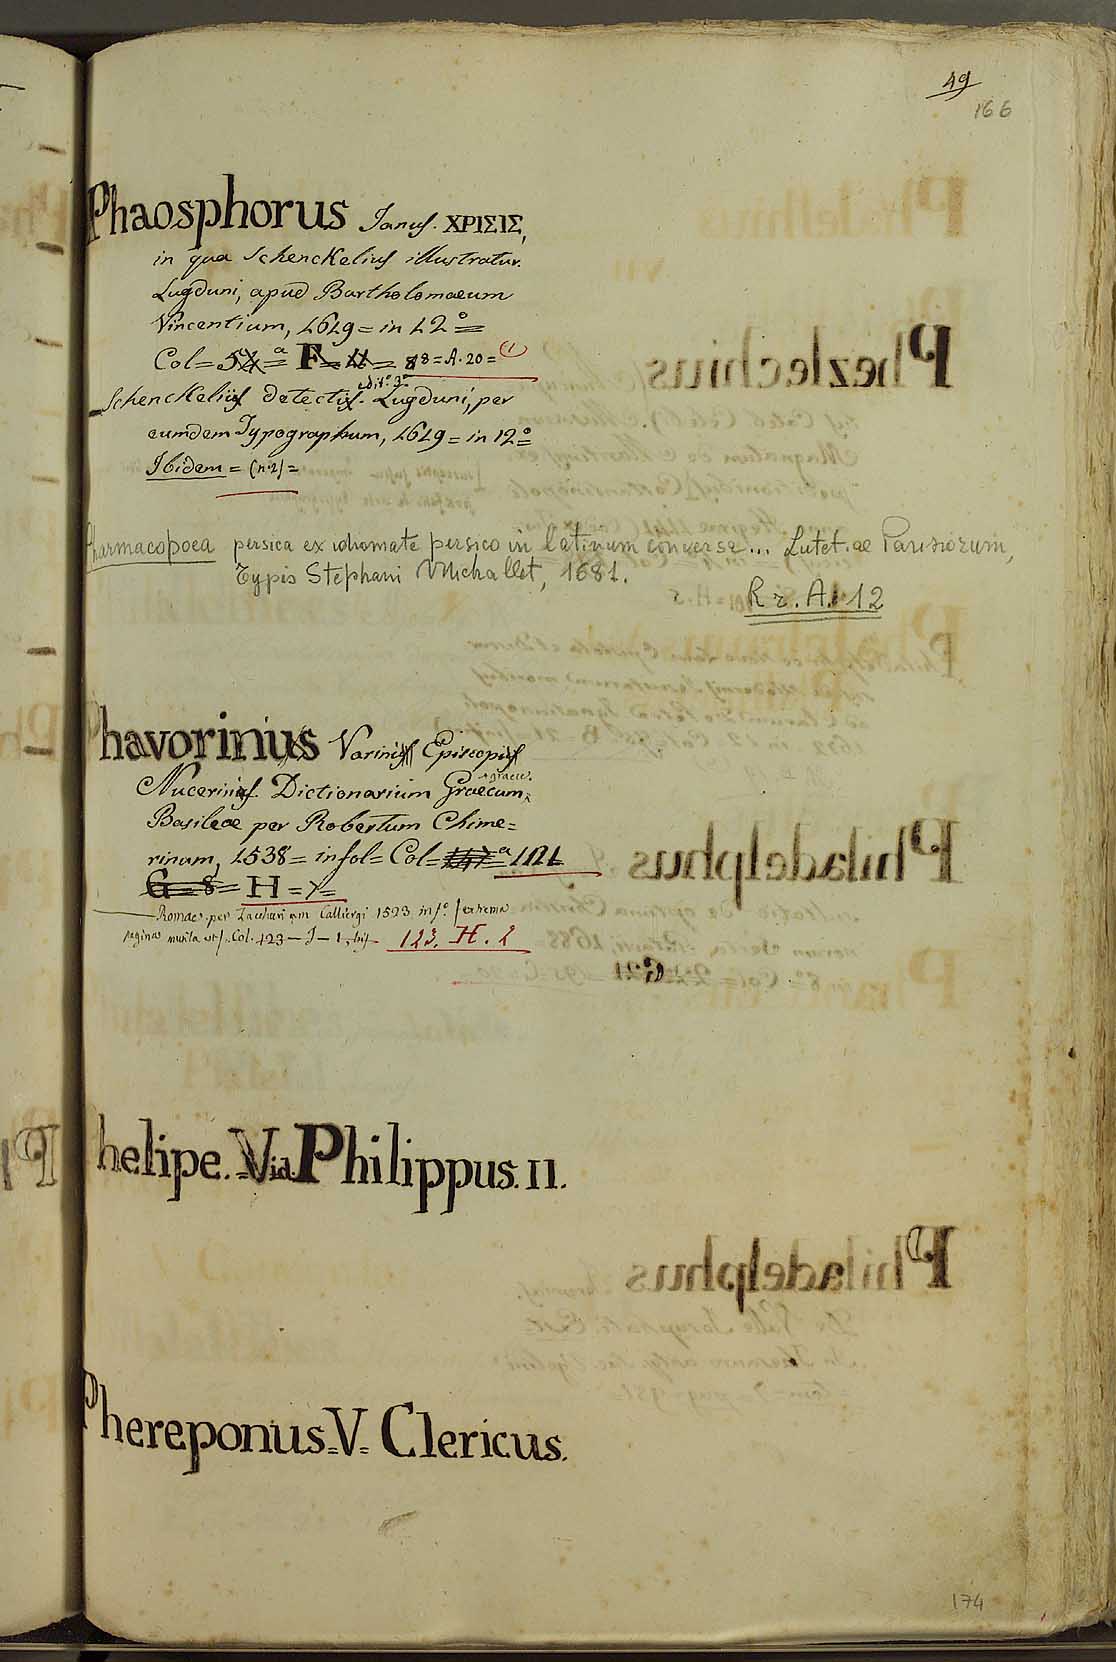 49
166
Phaosphorus Janus. ΧΡΙΣΙΣ,
in qua Schenckelius illustratur.
Lugduni, apud Bartholomaeum
Vincentium, 1619 = in 12°=
Col= 54ª= F= 11= 88=A·20= (1)
edit.° 3ª
Schenckelius detectus. Lugduni, per
eumdem Typographum, 1619= in 12°=
Ibidem = (n·2)=
Pharmacopoea persica ex idiomate persico in latinum converse... Lutetiae Parisiorum,
Typis Stephani Michallet, 1681.
R r. A. 12
Phavorinus Varinus Episcopus
Nucerinus. Dictionarium Graecum,
graece.
Basileae per Robertum Chime=
rinum, 1538= in fol= Col= ª 121
G= 8= H =7=
Romae per Zachariam Calliergi 1523 in f.° extrema
pagina mutila est. Col. 123 — I — 1. 123. H. 2
Phelipe.=Vid. Philippus. II.
Phereponus=V= Clericus.
174